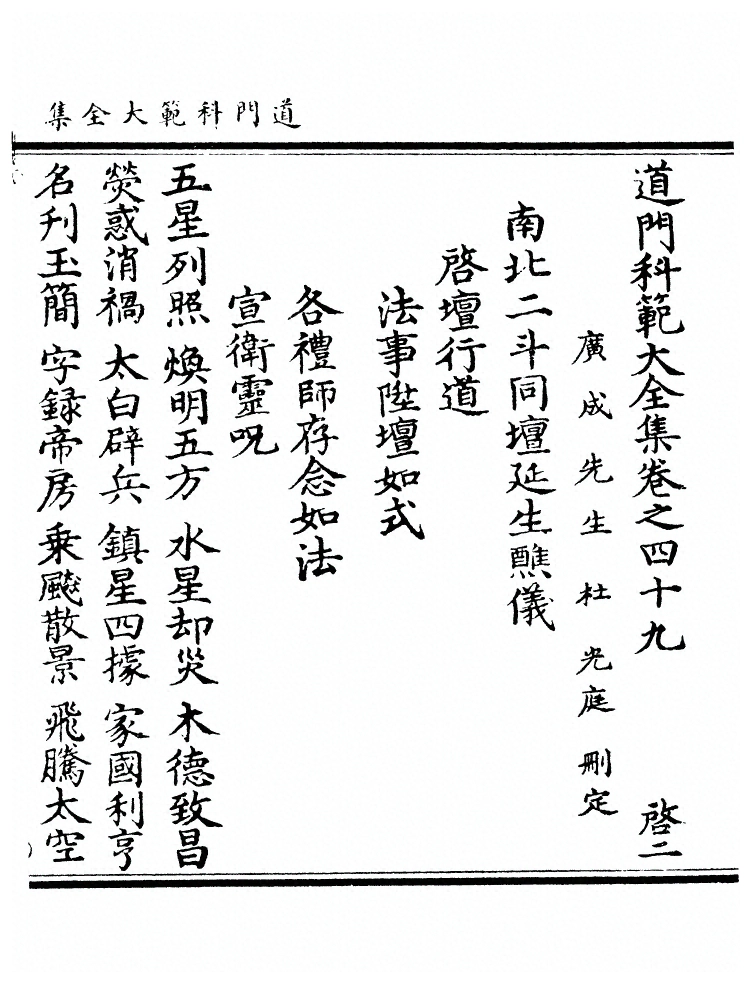 道門科範大全集
道門科範大全集卷之四十九 啓二
廣成先生杜光庭刪定
南北二斗同壇延生醮儀
啓壇行道
法事陞壇如式
各禮師存念如法
宣衛靈呪
五星列照 煥明五方 水星却災 木德致昌
熒惑消禍 太白辟兵 鎮星四據 家國利亨
名刋玉簡 字録帝房 乗飈散景 飛騰太空